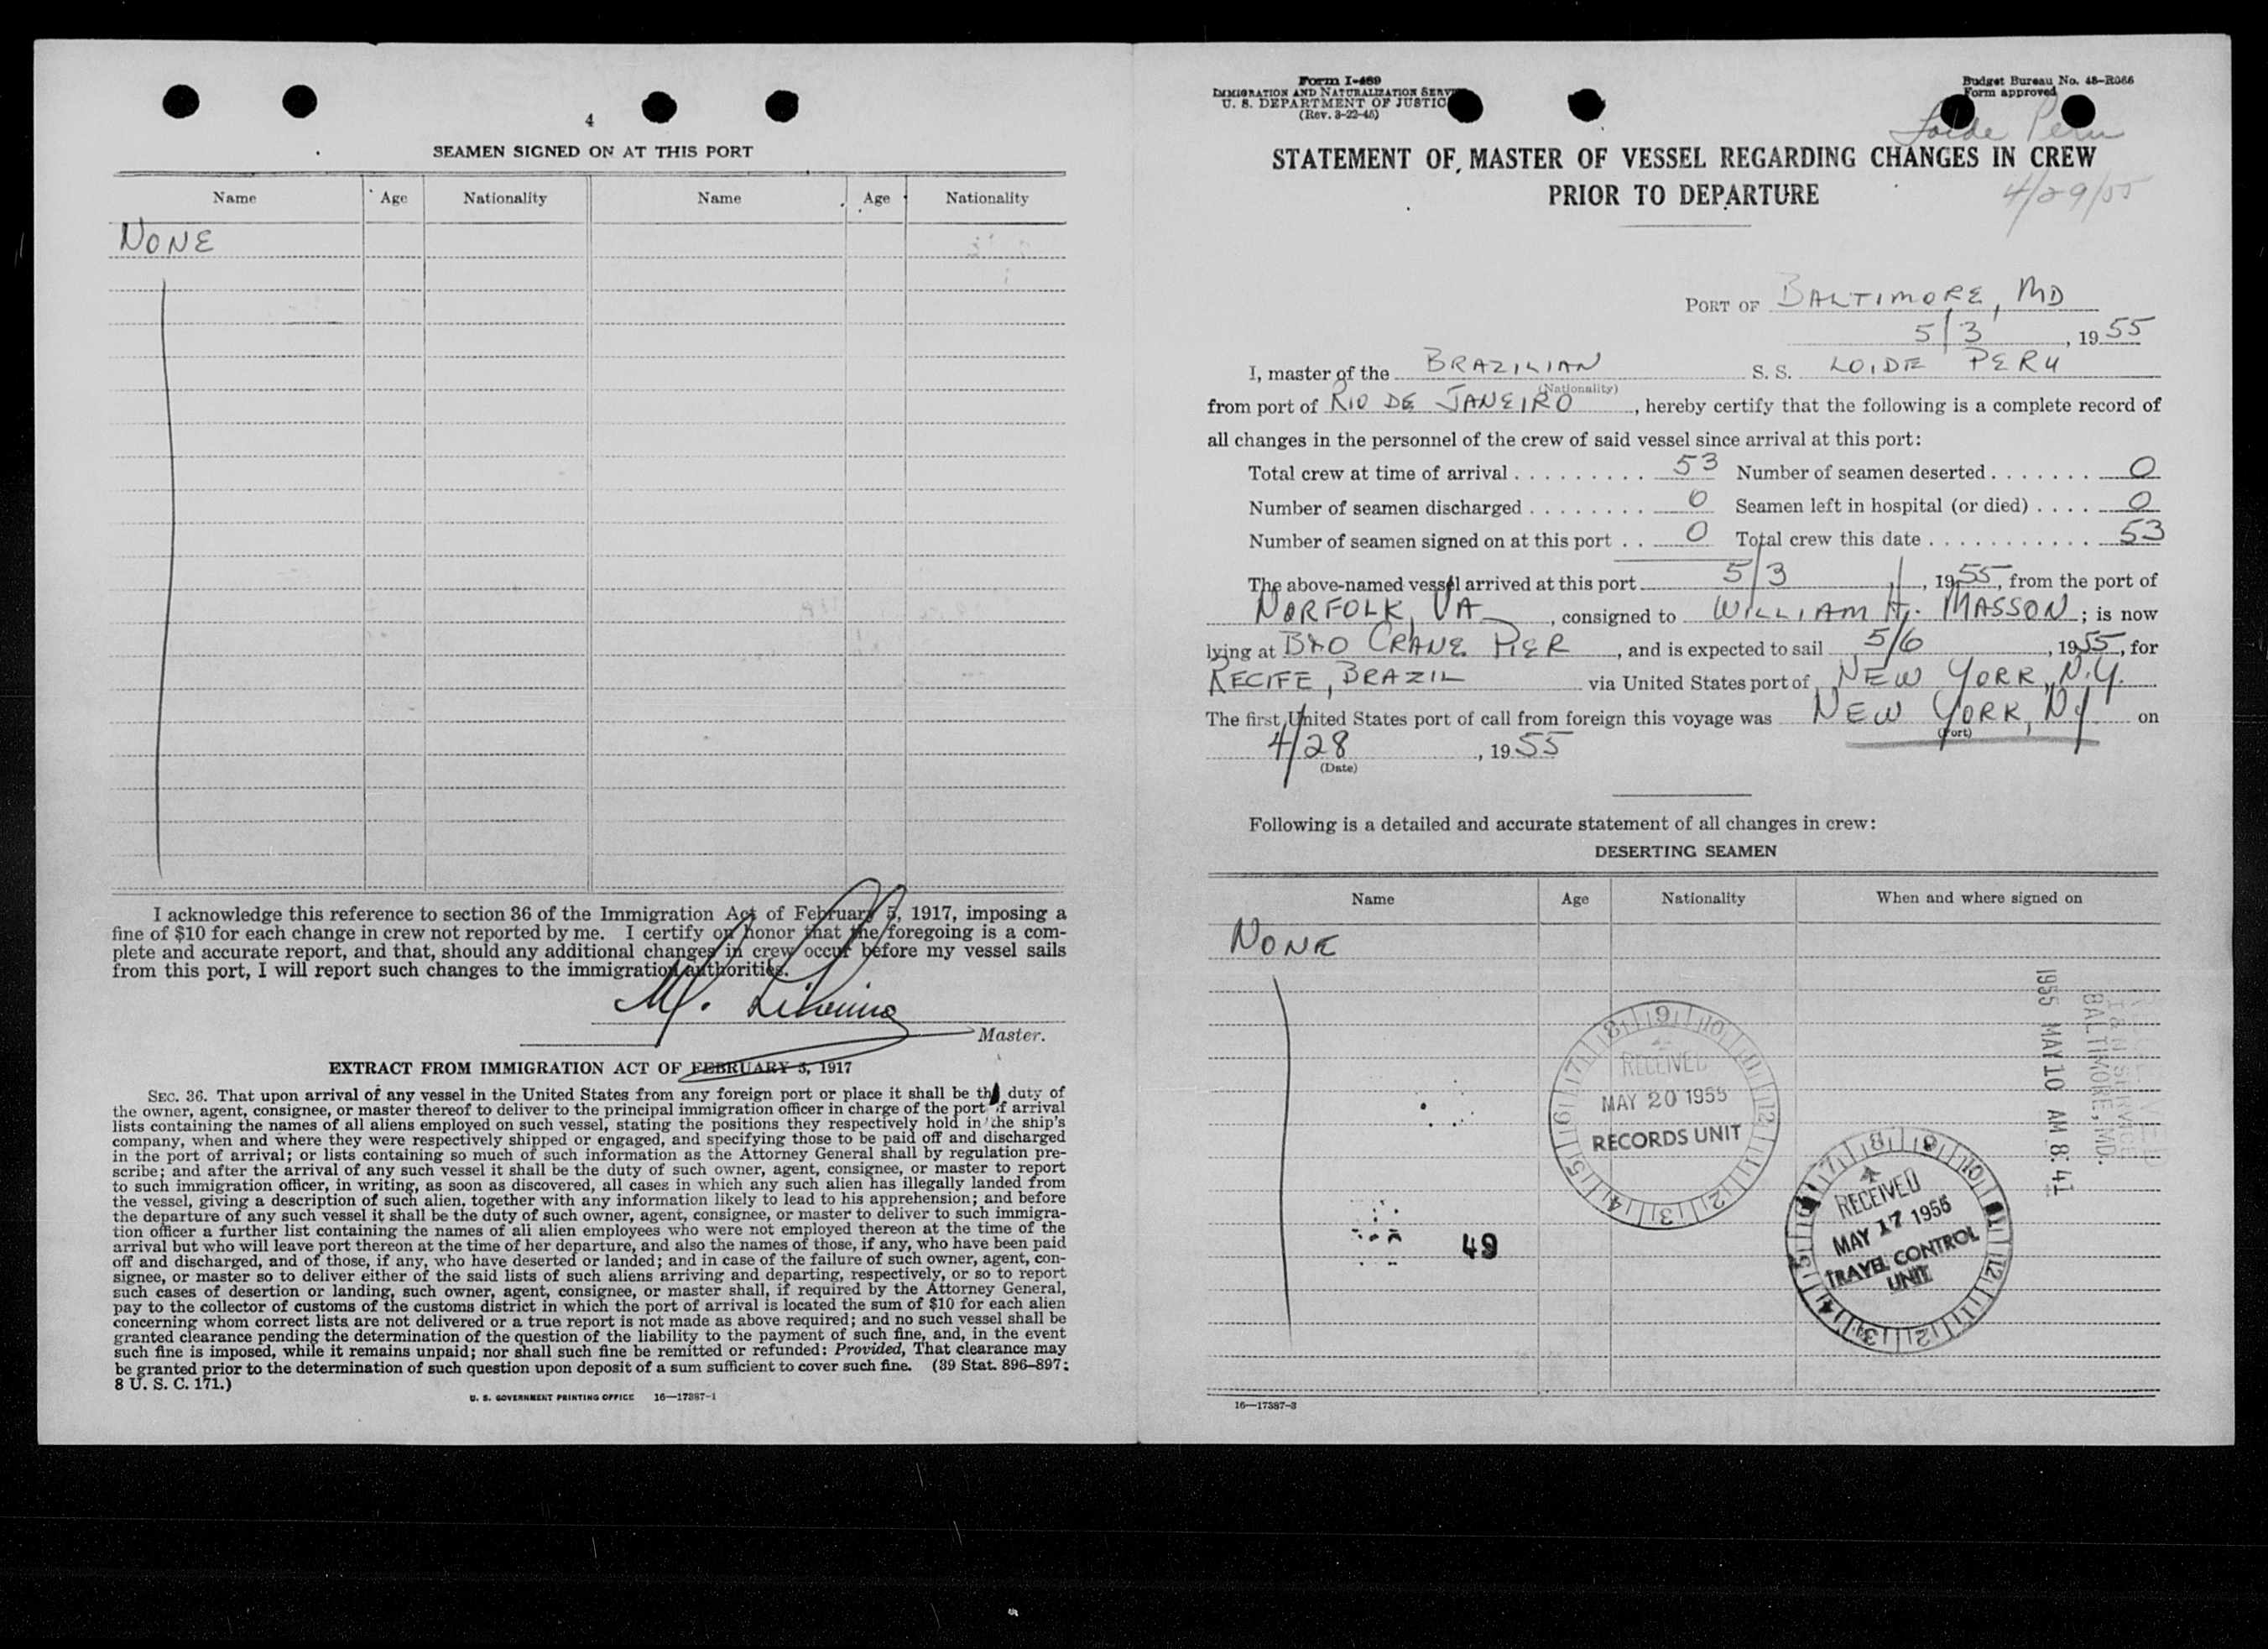 4
SEAMEN SIGNED ON AT THIS PORT
Name Age Nationality Name Age Nationality
NONE
I acknowledge this reference to section 36 of the Immigration Act of February 5, 1917, imposing a
fine of $10 for each change in crew not reported by me. I certify on honor that the foregoing is a com-
plete and accurate report, and that, should any additional changes in crew occur before my vessel sails
from this port, I will report such changes to the immigration authorities.
M.
Master.
EXTRACT FROM IMMIGRATION ACT OF FEBRUARY 5, 1917
SEC. 36. That upon arrival of any vessel in the United States from any foreign port or place it shall be the duty of
the owner, agent, consignee, or master thereof to deliver to the principal immigration officer in charge of the port of arrival
lists containing the names of all aliens employed on such vessel, stating the positions they respectively hold in the ship's
company, when and where they were respectively shipped or engaged, and specifying those to be paid off and discharged
in the port of arrival; or lists containing so much of such information as the Attorney General shall by regulation pre-
scribe; and after the arrival of any such vessel it shall be the duty of such owner, agent, consignee, or master to report
to such immigration officer, in writing, as soon as discovered, all cases in which any such alien has illegally landed from
the vessel, giving a description of such alien, together with any information likely to lead to his apprehension; and before
the departure of any such vessel it shall be the duty of such owner, agent, consignee, or master to deliver to such immigra-
tion officer a further list containing the names of all alien employees who were not employed thereon at the time of the
arrival but who will leave port thereon at the time of her departure, and also the names of those, if any, who have been paid
off and discharged, and of those, if any, who have deserted or landed; and in case of the failure of such owner, agent, con-
signee, or master so to deliver either of the said lists of such aliens arriving and departing, respectively, or so to report
such cases of desertion or landing, such owner, agent, consignee, or master shall, if required by the Attorney General,
pay to the collector of customs of the customs district in which the port of arrival is located the sum of $10 for each alien
concerning whom correct lists are not delivered or a true report is not made as above required; and no such vessel shall be
granted clearance pending the determination of the question of the liability to the payment of such fine, and, in the event
such fine is imposed, while it remains unpaid; nor shall such fine be remitted or refunded: Provided, That clearance may
be granted prior to the determination of such question upon deposit of a sum sufficient to cover such fine. (39 Stat. 896–897;
8 U. S. C. 171.)
U. S. GOVERNMENT PRINTING OFFICE 16—17387-1
Form I-489
IMMIGRATION AND NATURALIZATION SERV
U. S. DEPARTMENT OF JUSTIC
(Rev. 3-22-45)
Budget Bureau No. 43-R066
Form approved
Loide Peru
STATEMENT OF MASTER OF VESSEL REGARDING CHANGES IN CREW
PRIOR TO DEPARTURE
4/29/55
PORT OF BALTIMORE, MD
5/3, 1955
I, master of the BRAZILIAN S. S. LOIDE PERU
(Nationality)
from port of RIO DE JANEIRO, hereby certify that the following is a complete record of
all changes in the personnel of the crew of said vessel since arrival at this port:
Total crew at time of arrival 53 Number of seamen deserted 0
Number of seamen discharged 0 Seamen left in hospital (or died) 0
Number of seamen signed on at this port 0 Total crew this date 53
The above-named vessel arrived at this port 5/3, 1955, from the port of
NORFOLK, VA, consigned to WILLIAM H. MASSON; is now
lying at B&O CRANE PIER, and is expected to sail 5/6, 1955, for
RECIFE, BRAZIL via United States port of NEW YORK, N.Y.
The first United States port of call from foreign this voyage was NEW YORK, NY on
(Port)
4/28, 1955
(Date)
Following is a detailed and accurate statement of all changes in crew:
DESERTING SEAMEN
Name Age Nationality When and where signed on
NONE
RECEIVED
I & N SERVICE
BALTIMORE, MD.
1955 MAY 10 AM 8:41
RECEIVED
MAY 20 1955
RECORDS UNIT
RECEIVED
MAY 17 1955
TRAVEL CONTROL
UNIT
49
16—17387-3